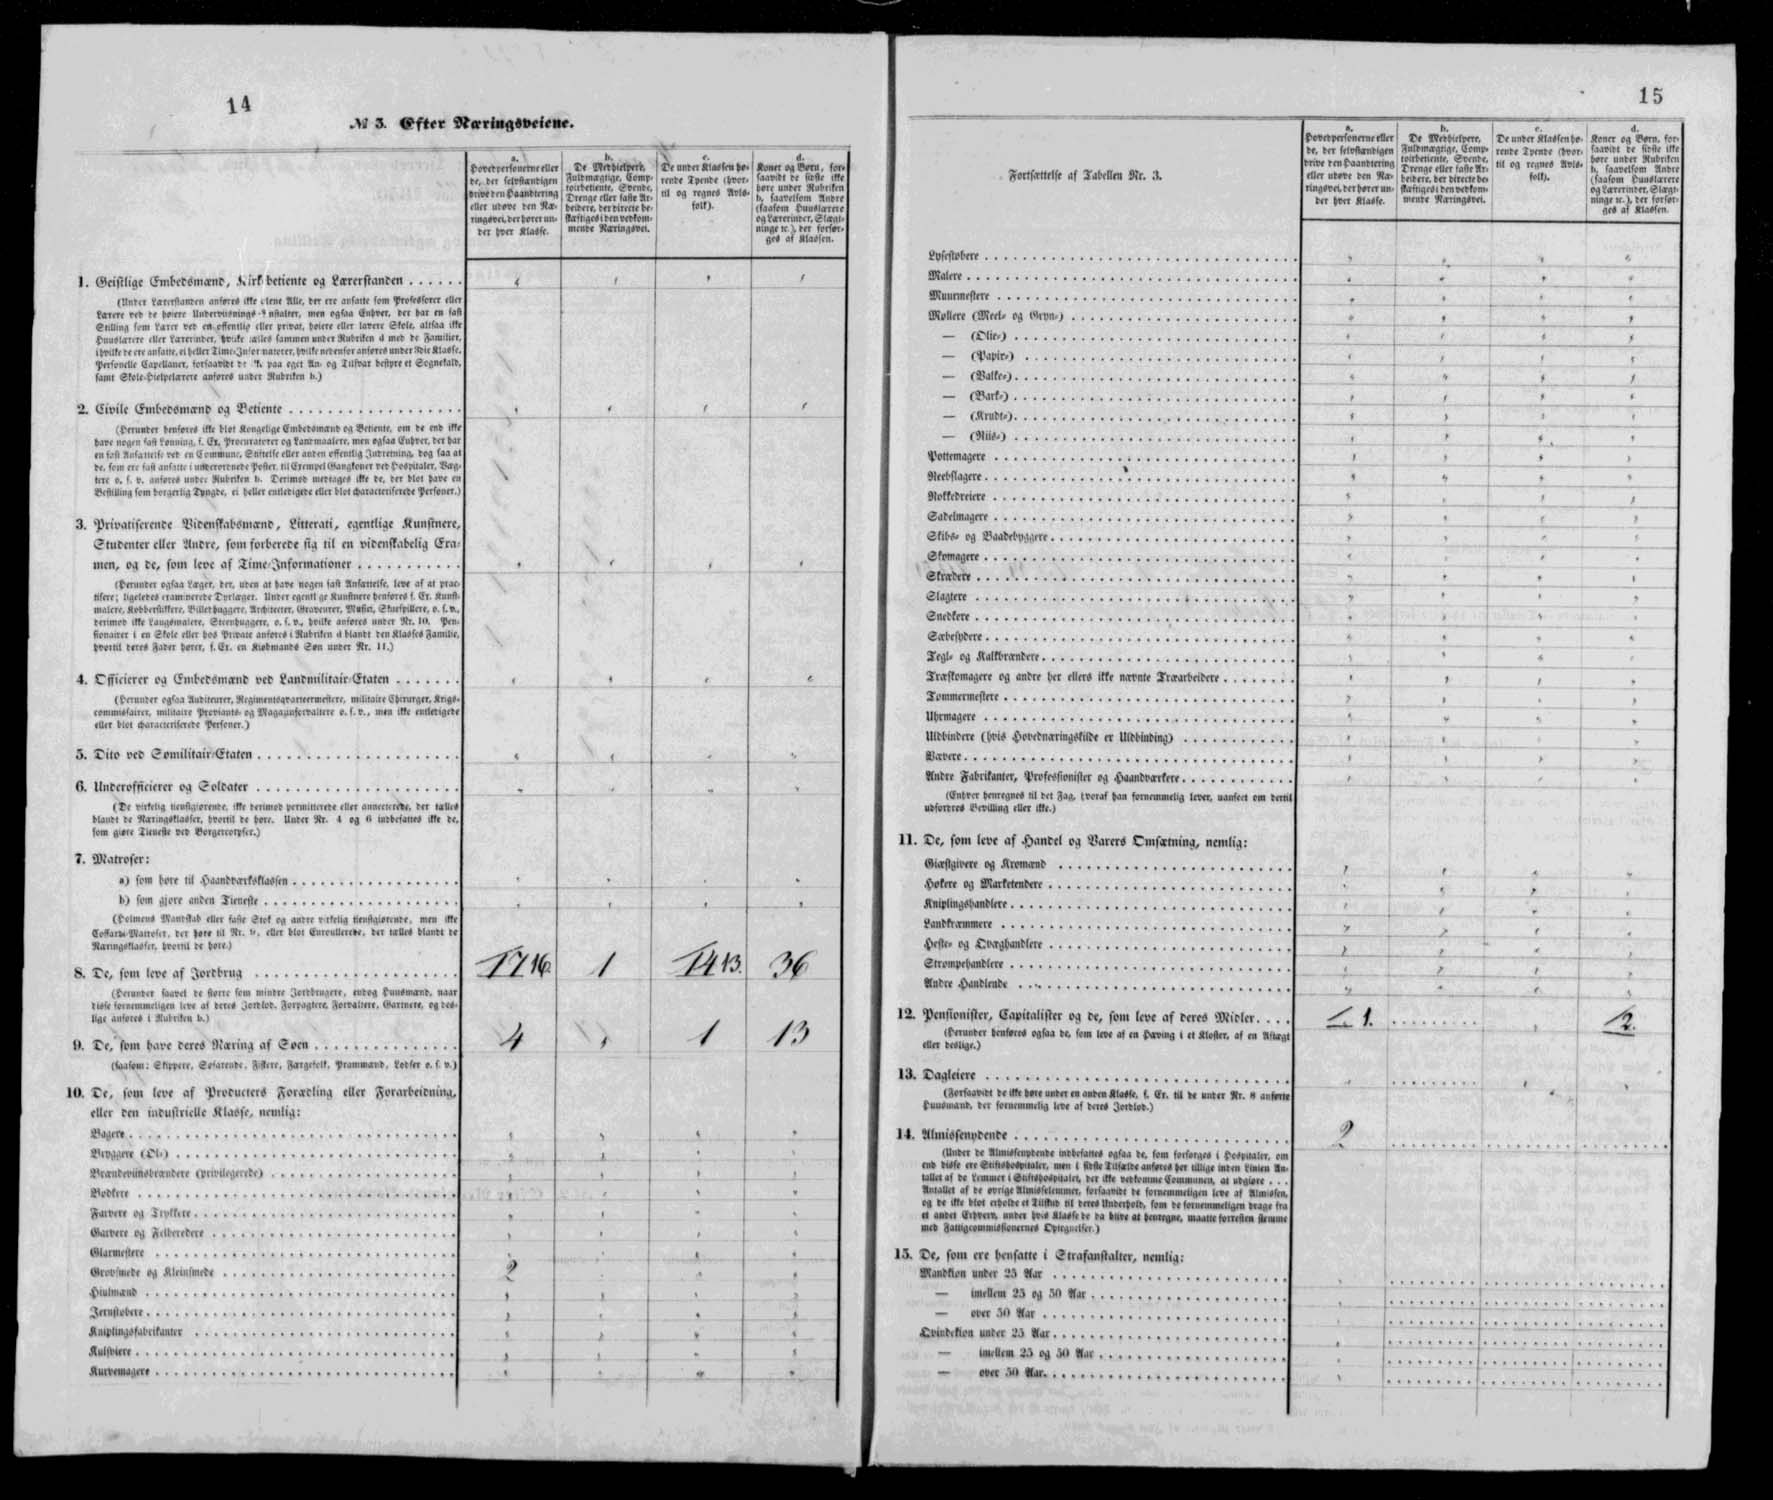 14
№ 3. Efter Næringsveiene.
a.
Hovedpersonerne eller
de, der selvstændigen
drive den Haandtering
eller udøve den Næ-
ringsvei, der hører un-
der hver Klasse.
b.
De Medhjelpere,
Fuldmægtige, Comp-
toirbetiente, Svende,
Drenge eller faste Ar-
beidere, der directe be-
skæftiges i den vedkom-
mende Næringsvei.
c.
De under Klassen hø-
rende Tyende (hvor-
til og regnes Avls-
folk).
d.
Koner og Børn, for-
saavidt de sidste ikke
høre under Rubriken
b, saavelsom Andre
(saasom Huuslærere
og Lærerinder, Slægt-
ninge ꝛc.), der forsør-
ges af Klassen.
1. Geistlige Embedsmænd, Kirkebetiente og Lærerstanden
(Under Lærerstanden anføres ikke alene Alle, der ere ansatte som Professorer eller
Lærere ved de høiere Underviisnings-Anstalter, men ogsaa Enhver, der har en fast
Stilling som Lærer ved en offentlig eller privat, høiere eller lavere Skole, altsaa ikke
Huuslærere eller Lærerinder, hvilke tælles sammen under Rubriken d med de Familier,
i hvilke de ere ansatte, ei heller Time-Informatorer, hvilke nedenfor anføres under 3die Klasse.
Personelle Capellaner, forsaavidt de ikke paa eget An- og Tilsvar bestyre et Sognekald,
samt Skole-Hielpelærere anføres under Rubriken b.)
2. Civile Embedsmænd og Betiente
(Herunder henføres ikke blot Kongelige Embedsmænd og Betiente, om de end ikke
have nogen fast Lønning, f. Ex. Procuratorer og Landmaalere, men ogsaa Enhver, der har
en fast Ansættelse ved en Commune, Stiftelse eller anden offentlig Indretning, dog saa at
de, som ere fast ansatte i underordnede Poster, til Exempel Gangkoner ved Hospitaler, Væg-
tere o. s. v. anføres under Rubriken b. Derimod medtages ikke de, der blot have en
Bestilling som borgerlig Tyngde, ei heller entledigede eller blot characteriserede Personer.)
3. Privatiserende Videnskabsmænd, Litterati, egentlige Kunstnere,
Studenter eller Andre, som forberede sig til en videnskabelig Exa-
men, og de, som leve af Time-Informationer
(Herunder ogsaa Læger, der, uden at have nogen fast Ansættelse, leve af at prac-
tisere; ligeledes examinerede Dyrlæger. Under egentlige Kunstnere henføres f. Ex. Kunst-
malere, Kobberstikkere, Billedhuggere, Architecter, Graveurer, Musici, Skuespillere, o. s. v.,
derimod ikke Laugsmalere, Steenhuggere, o. s. v., hvilke anføres under Nr. 10. Pen-
sionairer i en Skole eller hos Private anføres i Rubriken d blandt den Klasses Familie,
hvortil deres Fader hører, f. Ex. en Kiøbmands Søn under Nr. 11.)
4. Officierer og Embedsmænd ved Landmilitair-Etaten
(Herunder ogsaa Auditeurer, Regimentsqvarteermestere, militaire Chirurger, Krigs-
commissairer, militaire Proviants- og Magazinforvaltere o. s. v., men ikke entledigede
eller blot characteriserede Personer.)
5. Dito ved Sømilitair-Etaten
6. Underofficierer og Soldater
(De virkelig tienstgiørende, ikke derimod permitterede eller annecterede, der tælles
blandt de Næringsklasser, hvortil de høre. Under Nr. 4 og 6 indbefattes ikke de,
som giøre Tieneste ved Borgercorpser.)
7. Matroser:
a) som høre til Haandværksklassen
b) som gjøre anden Tieneste
(Holmens Mandskab eller faste Stok og andre virkelig tienstgiørende, men ikke
Coffardi-Matroser, der høre til Nr. 9, eller blot Enroullerede, der tælles blandt de
Næringsklasser, hvortil de høre.)
8. De, som leve af Jordbrug 17 16. 1 14 13. 36
(Herunder saavel de større som mindre Jordbrugere, endog Huusmænd, naar
disse fornemmeligen leve af deres Jordlod, Forpagtere, Forvaltere, Gartnere, og des-
lige anføres i Rubriken b.)
9. De, som have deres Næring af Søen 4 1 13
(saasom: Skippere, Søfarende, Fiskere, Færgefolk, Prammænd, Lodser o. s. v.)
10. De, som leve af Producters Forædling eller Forarbeidning,
eller den industrielle Klasse, nemlig:
Bagere
Bryggere (Øl-)
Brændeviinsbrændere (privilegerede)
Bødkere
Farvere og Trykkere
Garvere og Felberedere
Glarmestere
Grovsmede og Kleinsmede 2
Hiulmænd
Jernstøbere
Kniplingsfabrikanter
Kulsviere
Kurvemagere
15
Fortsættelse af Tabellen Nr. 3.
a.
Hovedpersonerne eller
de, der selvstændigen
drive den Haandtering
eller udøve den Næ-
ringsvei, der hører un-
der hver Klasse.
b.
De Medhjelpere,
Fuldmægtige, Comp-
toirbetiente, Svende,
Drenge eller faste Ar-
beidere, der directe be-
skæftiges i den vedkom-
mende Næringsvei.
c.
De under Klassen hø-
rende Tyende (hvor-
til og regnes Avls-
folk).
d.
Koner og Børn, for-
saavidt de sidste ikke
høre under Rubriken
b, saavelsom Andre
(saasom Huuslærere
og Lærerinder, Slægt-
ninge ꝛc.), der forsør-
ges af Klassen.
Lysestøbere
Malere
Muurmestere
Møllere (Meel- og Gryn-)
— (Olie-)
— (Papir-)
— (Valke-)
— (Bark-)
— (Krudt-)
— (Riis-)
Pottemagere
Reebslagere
Rokkedreiere
Sadelmagere
Skibs- og Baadebyggere
Skomagere
Skrædere
Slagtere
Snedkere
Sæbesydere
Tegl- og Kalkbrændere
Træskomagere og andre her ellers ikke nævnte Træarbeidere
Tømmermestere
Uhrmagere
Uldbindere (hvis Hovednæringskilde er Uldbinding)
Vævere
Andre Fabrikanter, Professionister og Haandværkere
(Enhver henregnes til det Fag, hvoraf han fornemmelig lever, uanseet om dertil
udfordres Bevilling eller ikke.)
11. De, som leve af Handel og Varers Omsætning, nemlig:
Giæstgivere og Kromænd
Høkere og Marketendere
Kniplingshandlere
Landkræmmere
Heste- og Qvæghandlere
Strømpehandlere
Andre Handlende
12. Pensionister, Capitalister og de, som leve af deres Midler. 1. 2.
(Herunder henføres ogsaa de, som leve af en Hæving i et Kloster, af en Aftægt
eller deslige.)
13. Dagleiere
(Forsaavidt de ikke høre under en anden Klasse, f. Ex. til de under Nr. 8 anførte
Huusmænd, der fornemmelig leve af deres Jordlod.)
14. Almissenydende 2
(Under de Almissenydende indbefattes ogsaa de, som forsørges i Hospitaler, om
end disse ere Stiftshospitaler, men i sidste Tilfælde anføres her tillige inden Linien An-
tallet af de Lemmer i Stiftshospitalet, der ikke vedkomme Communen, at udgiøre . . .
Antallet af de øvrige Almisselemmer, forsaavidt de fornemmeligen leve af Almissen,
og de ikke blot erholde et Tilskud til deres Underhold, som de fornemmeligen drage fra
et andet Erhverv, under hvis Klasse de da blive at henregne, maatte forresten stemme
med Fattigcommissionernes Optegnelser.)
15. De, som ere hensatte i Strafanstalter, nemlig:
Mandkiøn under 25 Aar
— imellem 25 og 50 Aar
— over 50 Aar
Qvindekiøn under 25 Aar
— imellem 25 og 50 Aar
— over 50 Aar.